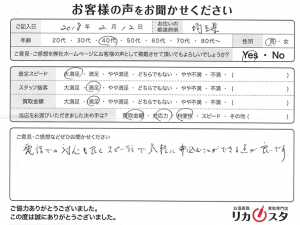 お客様の声をお聞かせください
ご記入日 2018年2月12日 お住いの都道府県 埼玉県
年齢 20代・30代・40代・50代・60代・70代・80代〜 性別 男・女
ご意見・ご感想を弊社ホームページにお客様の声として掲載させて頂いてもよろしいでしょうか? Yes・No
査定スピード 大満足・満足・やや満足・どちらでもない・やや不満・不満
スタッフ接客 大満足・満足・やや満足・どちらでもない・やや不満・不満
買取金額 大満足・満足・やや満足・どちらでもない・やや不満・不満
当店をお選びいただきました決め手は? 買取金額・対応力・利便性・スピード・その他( )
ご意見・ご感想などぜひお聞かせください。
電話での対応も良くスピーディで気軽に申込むことができる点が良いです
ご協力ありがとうございました。
この度は誠にありがとうございました。
お酒高価買取専門店
リカスタ